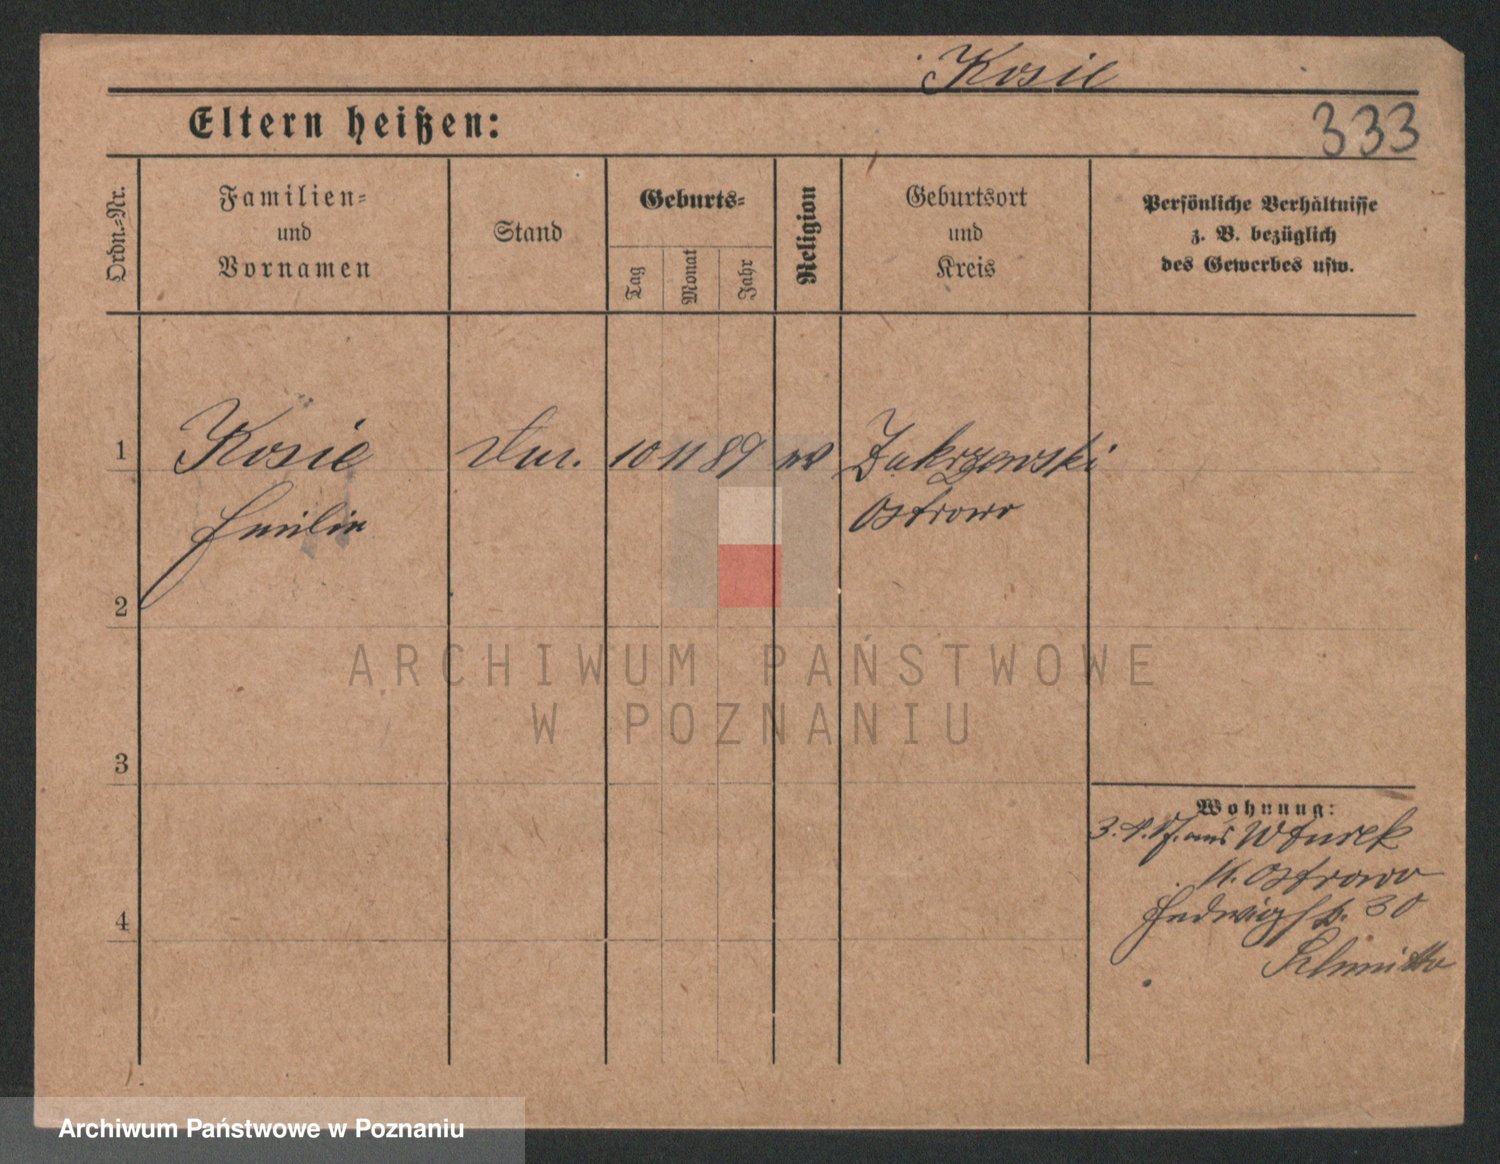 Kosie
Eltern heißen:
333
Ordn.-Nr.
Familien-
und
Vornamen
Stand
Geburts-
Tag
Monat
Jahr
Religion
Geburtsort
und
Kreis
Persönliche Verhältnisse
z. B. bezüglich
des Gewerbes usw.
1
Kosie
10 11 89
Zakrzewski
Emilie
Ostrowo
2
ARCHIWUM PAŃSTWOWE
W POZNANIU
3
Wohnung:
aus
Ostrowo
30
4
Archiwum Państwowe w Poznaniu